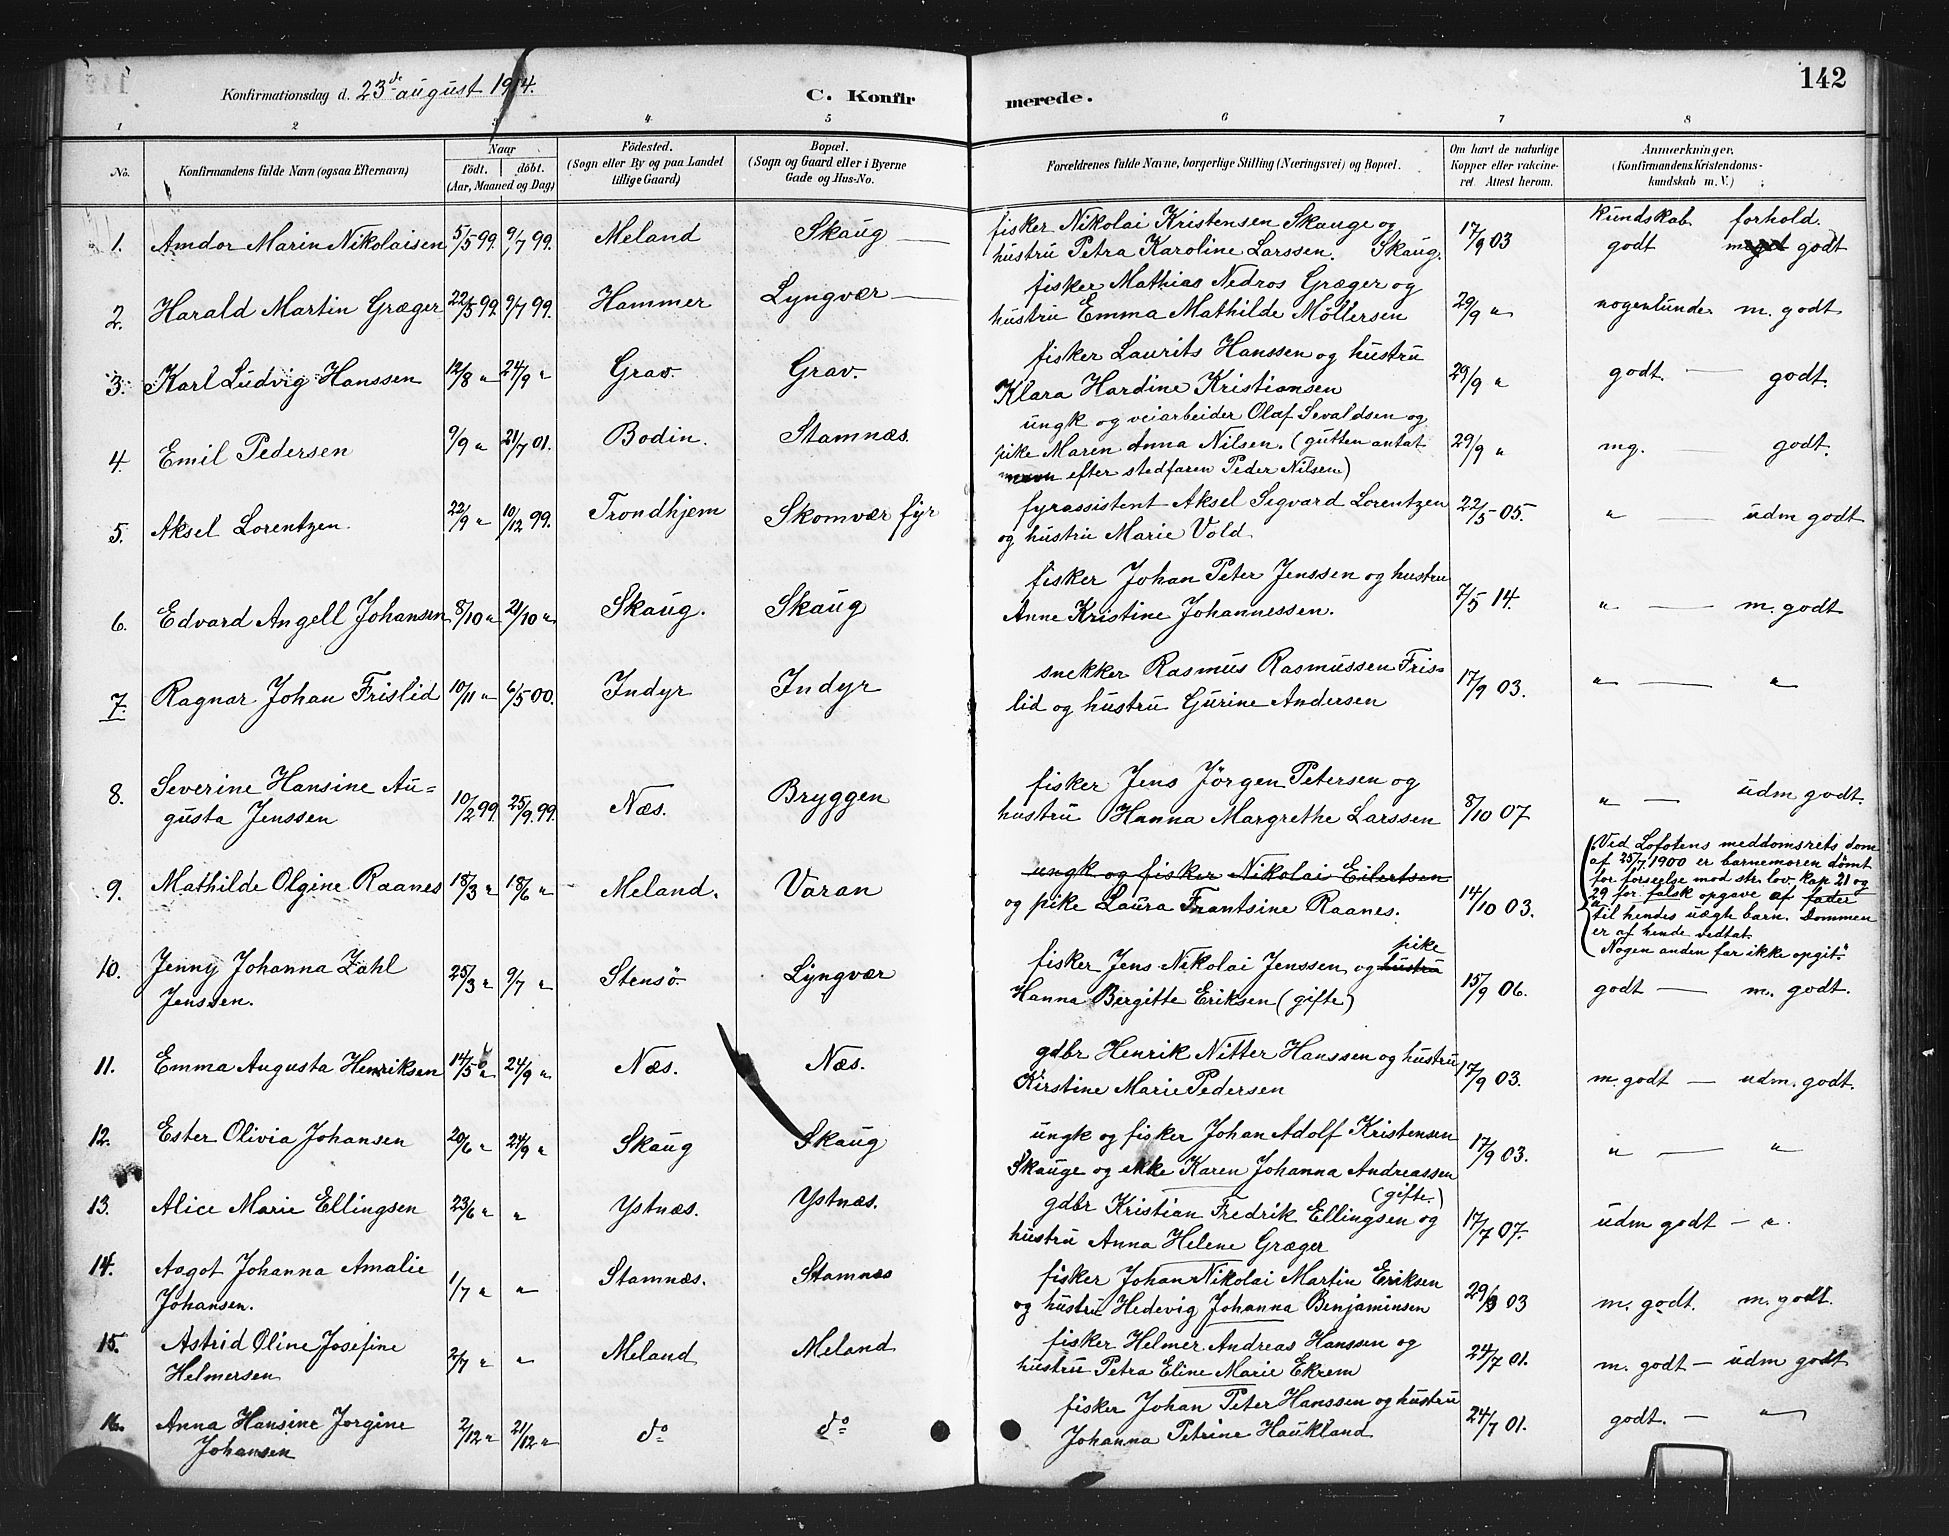 142
Konfirmationsdag d. 23de august 1914.
C. Konfirmerede.
1 2 3 4 5 6 7 8
No.
Konfirmandens fulde Navn (ogsaa Efternavn)
Naar
födt. döbt.
(Aar, Maaned og Dag)
Födested.
(Sogn eller By og paa Landet
tillige Gaard)
Bopæl.
(Sogn og Gaard eller i Byerne
Gade og Hus-No.
Forældrenes fulde Navne, borgerlige Stilling (Næringsvei) og Bopæl.
Om havt de naturlige
Kopper eller vakcine-
ret Attest herom.
Anmærkninger.
(Konfirmandens Kristendoms-
kundskab m. V.)
kundskab forhold.
1. Amdor Marin Nikolaisen 5/5 99. 9/7 99. Meland Skaug — fisker Nikolai Kristensen Skauge og
hustru Petra Karoline Larssen. Skaug. 17/9 03 godt meget godt
2. Harald Martin Græger 22/5 99 9/7 99. Hammer Lyngvær — fisker Mathias Nedros Græger og
hustru Emma Mathilde Möllersen 29/9 " nogenlunde m. godt
3. Karl Ludvig Hanssen 12/8 " 24/9 " Grav. Grav. fisker Laurits Hanssen og hustru
Klara Hardine Kristiansen 29/9 " godt. — godt.
4 Emil Pedersen 9/9 " 21/7 01. Bodin. Stamnæs. ungk og veiarbeider Olaf Sevaldsen og
pike Maren Anna Nilsen. (gutten antat
navn efter stedfaren Peder Nilsen) 29/9 " mg. — godt.
5. Aksel Lorentzen. 22/9 " 10/12 99. Trondhjem Skomvær fyr fyrassistent Aksel Segvard Lorentzen
og hustru Marie Vold. 22/5 05. " — udm godt
6. Edvard Angell Johansen 8/10 " 21/10 " Skaug. Skaug fisker Johan Peter Jenssen og hustru
Anne Kristine Johannessen. 7/5 14. " — m. godt
7. Ragnar Johan Frislid 10/11 " 6/5 00. Indyr Indyr snekker Rasmus Rasmussen Fris=
lid og hustru Gurine Andersen 17/9 03. " — "
8. Severine Hansine Au=
gusta Jenssen 10/2 99. 25/9. 99. Næs. Bryggen fisker Jens Jörgen Petersen og
hustru Hanna Margrethe Larssen 8/10 07 " — udm godt.
9. Mathilde Olgine Raanes 18/3 " 18/6 " Meland. Varan ungk og fisker Nikolai Eilertsen
og pike Laura Frantsine Raanes. 14/10 03.
"Ved Lofotens meddomsrets dom
af 25/7 1900 er barnemoren dømt
for forseelse mod str. lov. kap 21 og
29 for falsk opgave af fader
til hendes uægte barn. Dommen
er af hende vedtat.
Nogen anden far ikke opgit."
10. Jenny Johanna Zahl
Jenssen. 25/3 " 9/7 " Stensö. Lyngvær fisker Jens Nikolai Jenssen og hustru pike
Hanna Bergitte Eriksen (gifte) 15/9 06. godt — m. godt.
11. Emma Augusta Henriksen 14/5 " 24/9 " Næs. Næs. gdbr Henrik Nitter Hanssen og hustru
Kirstine Marie Pedersen 17/9 03. m. godt — udm. godt.
12. Ester Olivia Johansen 20/6 " 24/9 " Skaug Skaug ungk og fisker Johan Adolf Kristensen
Skauge og Karen Johanna Andreassen
(gifte.) 17/9 03. " — "
13. Alice Marie Ellingsen 23/6 " " Ystnæs. Ystnæs. gdbr Kristian Fredrik Ellingsen og
hustru Anna Helene Græger 17/7 07. udm godt — ".
14. Aagot Johanna Amalie
Johansen. 1/7 " " Stamnæs. Stamnæs fisker Johan Nikolai Martin Eriksen
og hustru Hedevig Johanna Benjaminsen 29/9 03 m. godt. m. godt.
15. Astrid Oline Josefine
Helmersen 2/7 " " Meland Meland fisker Helmer Andreas Hanssen og
hustru Petra Eline Marie Ekrem 24/7 01. m. godt — udm godt
16. Anna Hansine Jorgine
Johansen 2/12 " 21/12 " do do fisker Johan Peter Hanssen og hustru
Johanna Petrine Haukland 24/7 01. godt. — "